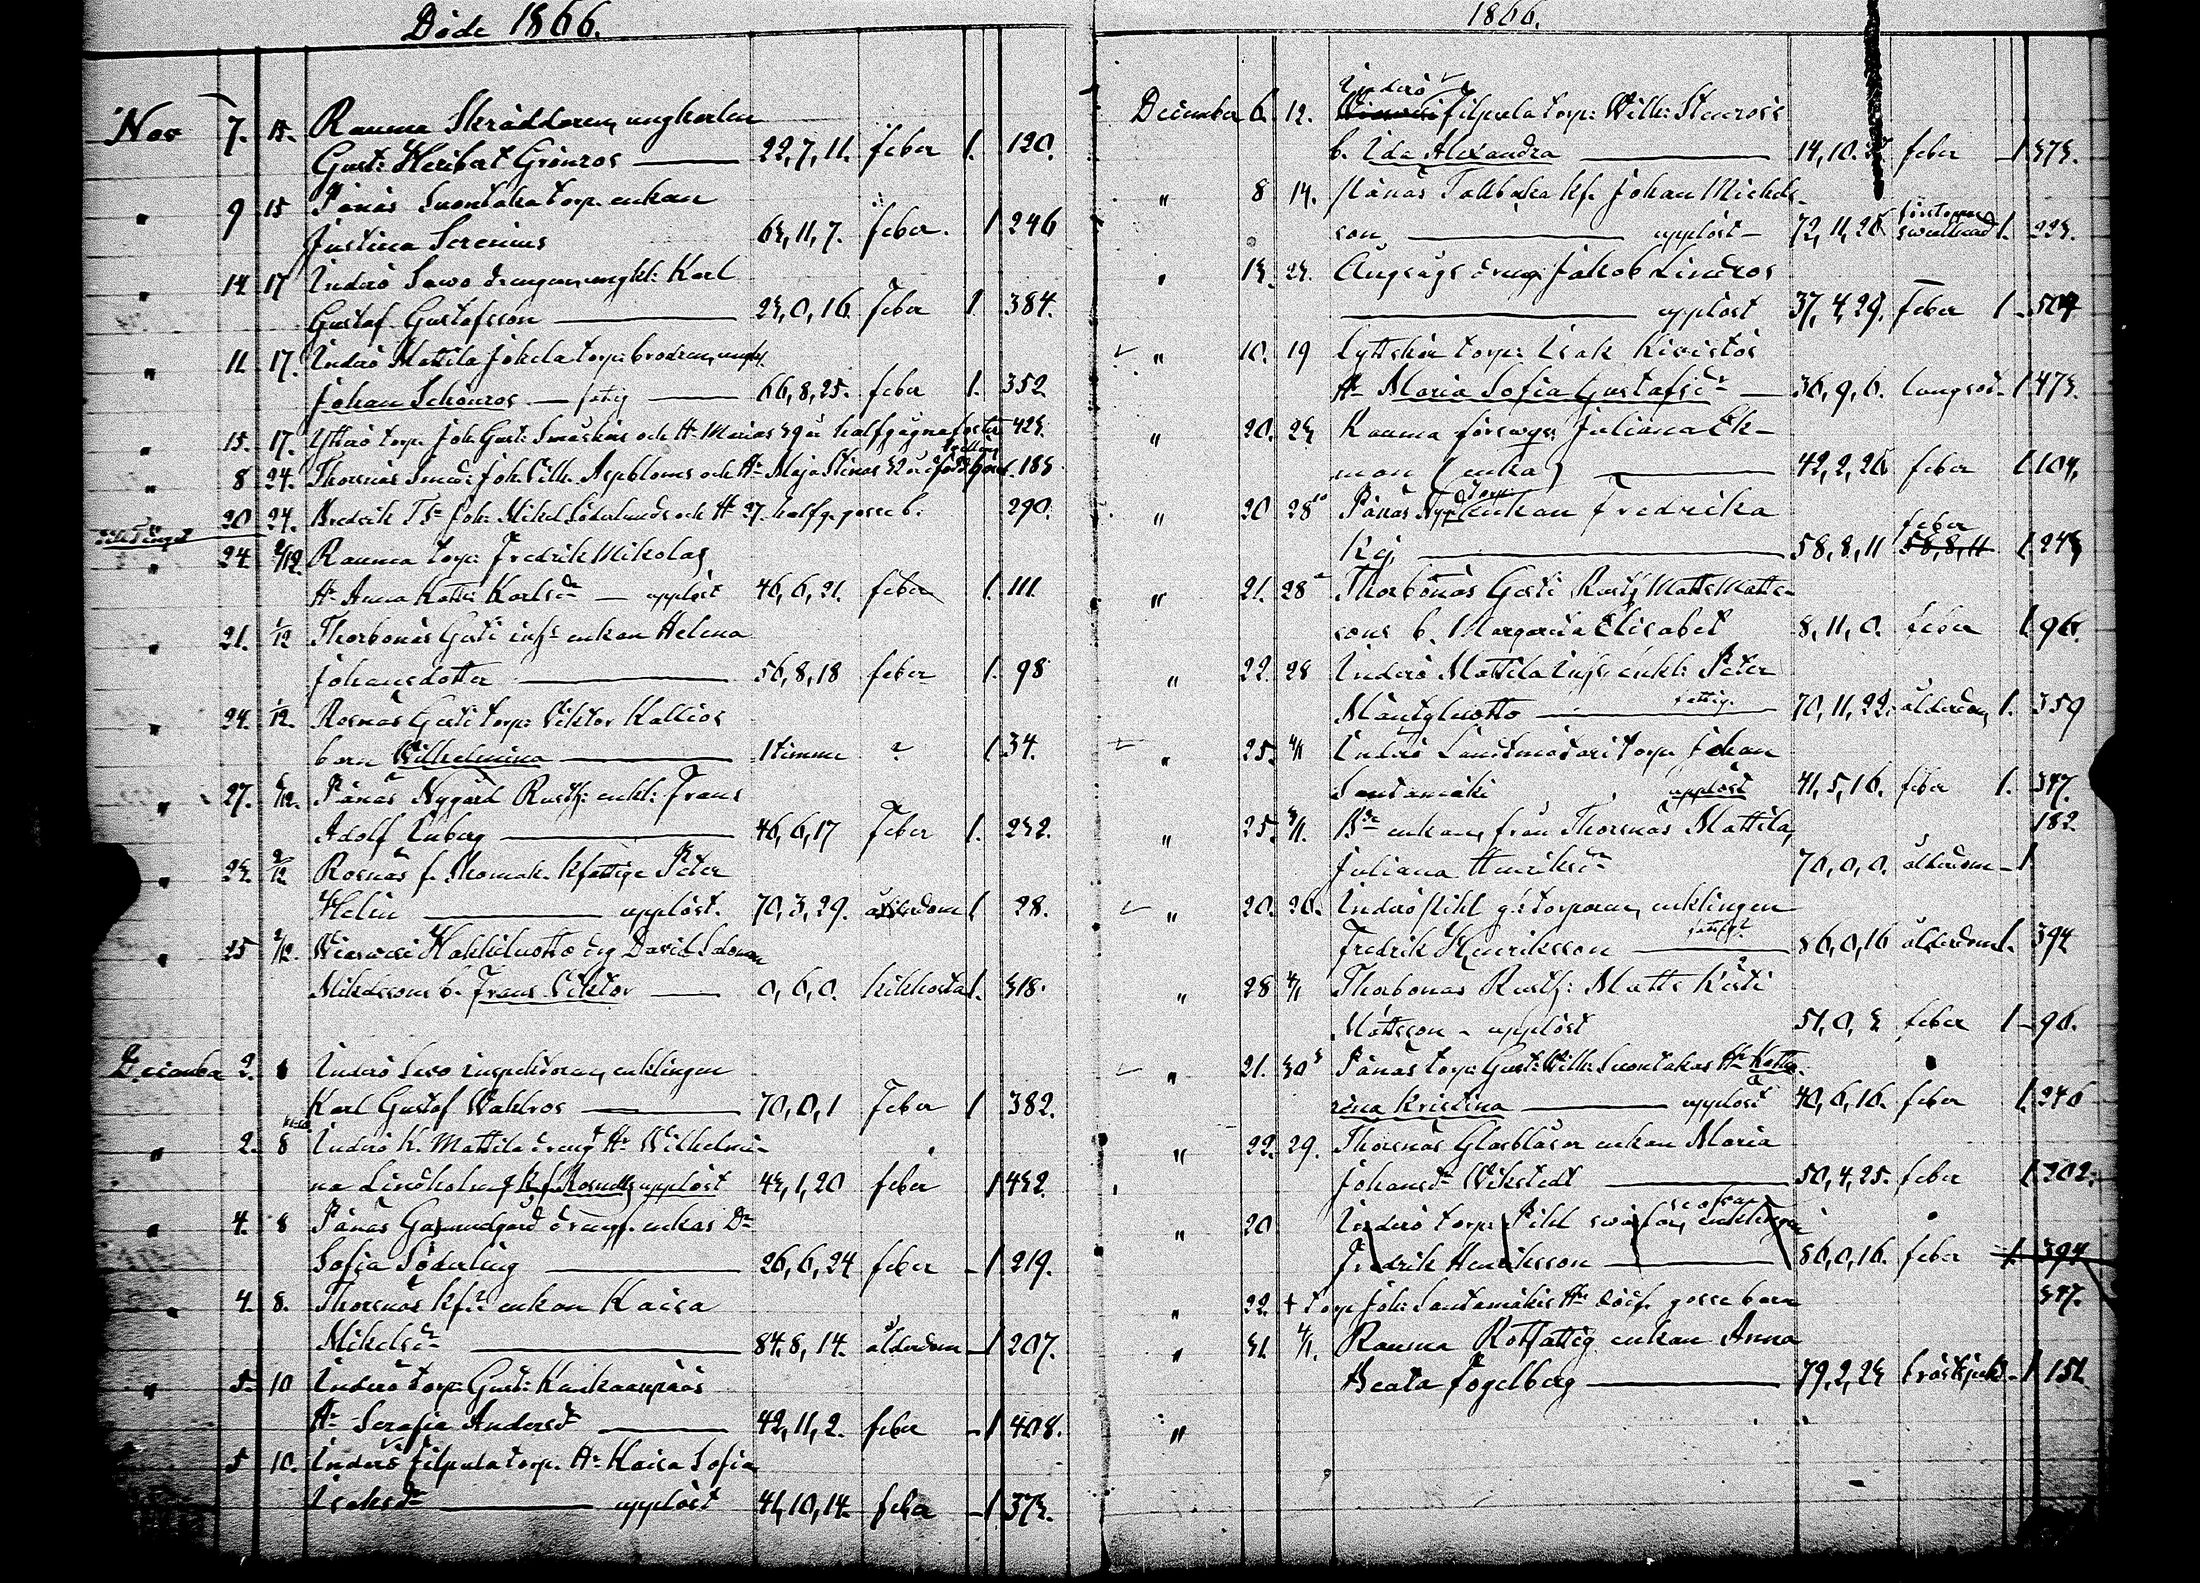 Döde 1866.
Nov 7. Rauma Skräddaren, ungkarlen
Gust: Heribert Grönroos 22,7,11. feber 1. 120.
" 9 15 Pänäs Suontaka torp. enkan
Justina Serenius 63,11,7. feber. 1. 246
" 14 17 Inderö Sawo drengen, ungk: Karl
Gustaf Gustafsson 23,0,16 Feber 1 384.
" 11 17. Inderö Mattila Jokela torp: brodren, ungk.
Johan Schönros 66,8,25. feber 1. 352
" 15. 17. torp. Joh: Gust: och H. Marias 39 år halfgågna foster 423.
" 8 24. Thorsnäs Smed: Joh. Wilh. Aspbloms och H. Maja Stinas 32 år 183
20 24. Bredvik Joh: Mikel Söderlunds och H 27. halfg. gosse b. 290.
" 24 2/12. Rauma torp: Fredrik Mikolas
H. Anna Katr: Karlsdr upplöst 46,6,21. feber 1. 111.
" 21. 1/12 Thorbonäs Gerti inhs enkan Helena
Johansdotter 56,8,18 feber 1. 98
" 24. 1/12. Rosnäs Gerti torp: Viktor Kallios
barn Wilhelmina 1 timme ? 1 34.
" 27. /12. Pänäs Nygård Rusth: enkl: Frans
Adolf Inberg 46,6,17 Feber 1. 232.
" 23. 2/12 Rosnäs f. Skomak. kfattige Peter
Helin upplöst. 70,3,29. ålderdom 1 28.
" 25 2/12. Wiasvesi Hakkiluotto dg David Salomon
Mikelssons b. Frans Viktor 0,6,0. kikhosta 1. 318.
December 2. 8 Inderö Sawo inspektoren, enklingen
Karl Gustaf Wahlros 70,0,1 Feber 1 382.
" 2. 8 Inderö K. Mattila dreng H. Wilhelmi-
na Lindholm upplöst 43,1,20 feber 1 432.
" 4. 8 Pänäs Gammelgård drengf. enkas Dr
Sofia Söderling 26,6,24 feber 1. 219.
" 4. 8. Thorsnäs kfr enkan Kaisa
Mikelsdr 84,8,14. ålderdom 1 207.
" 5. 10 Inderö torp: Gust: Kankaanpääs
H. Serafia Andersdr 42,11,2. feber 1 408.
5 10. Inderö Filpula torp. H. Kaisa Sofia
Isaksdr upplöst 41,10,14. feber 1. 373.
1866.
December 6. 12. Inderö Filpula torp: Wilh: Stenroos
b. Ida Alexandra 14,10. feber 1 373.
" 8 14. Pänäs Takbaka kf. Johan Mickels-
son upplöst 72,11,26 förstoppn swullnad 1. 223.
" 13. 23. Ångsågs dreng: Jakob Lindros
upplöst 37,4,29. feber 1 504
" 10. 19 Lyttskär torp: Isak Kivistös
H. Maria Sofia Gustafsdr 36,9,6. lungsot 1. 473.
" 20. 23 Rauma försvags: Juliana Ek-
man (enka) 42,2,26 feber 1. 104.
" 20 28 Pänäs Nyg: torp: enkan Fredrika
58,8,11 feber 58,8,11 1. 243
" 21. 28 Thorbonäs Gerti Rusth Matts Matts-
sons b. Margareta Elisabet 8,11,0. feber 1. 96.
" 22. 28 Inderö Mattila inhs enkl: Peter
Mäntyluotto fattig. 70,11,22. ålderdom 1. 359
" 25. 4/1 Inderö Landtmätari torp Johan
Santamäki upplöst 41,5,16. feber 1. 347.
" 25 /1. enkan, från Thorsnäs Mattila, 182
Juliana Henriksdr 70,0,0. ålderdom 1
" 20. 26. Inderö Pihl g. torparen, enklingen
Fredrik Henriksson 86,0,16 ålderdom 1. 394
" 28 4/1 Thorbonäs Rusth: Matts Kerti
Mattsson - upplöst 51,0,3 feber 1 96.
" 21. 30 Pänäs torp: Gust: Wilh: Suontakas H. Katha-
rina Kristina upplöst 40,6,16. feber 1. 246
" 22. 29. Thorsnäs Glasblåsar enkan Maria
Johansdr Wikstedt 50,4,25. feber 1. 202.
" 20 Inderö torp. Pihl enklingen
Fredrik Henriksson 86,0,16. feber 1. 394
" 22 + torp Joh: Santamäkis H. dödf. gosse barn 347.
" 31. 4/1. Rauma Rotfattig enkan Anna
Beata Fogelberg 79,2,23 bröstsjukd 1 151
"